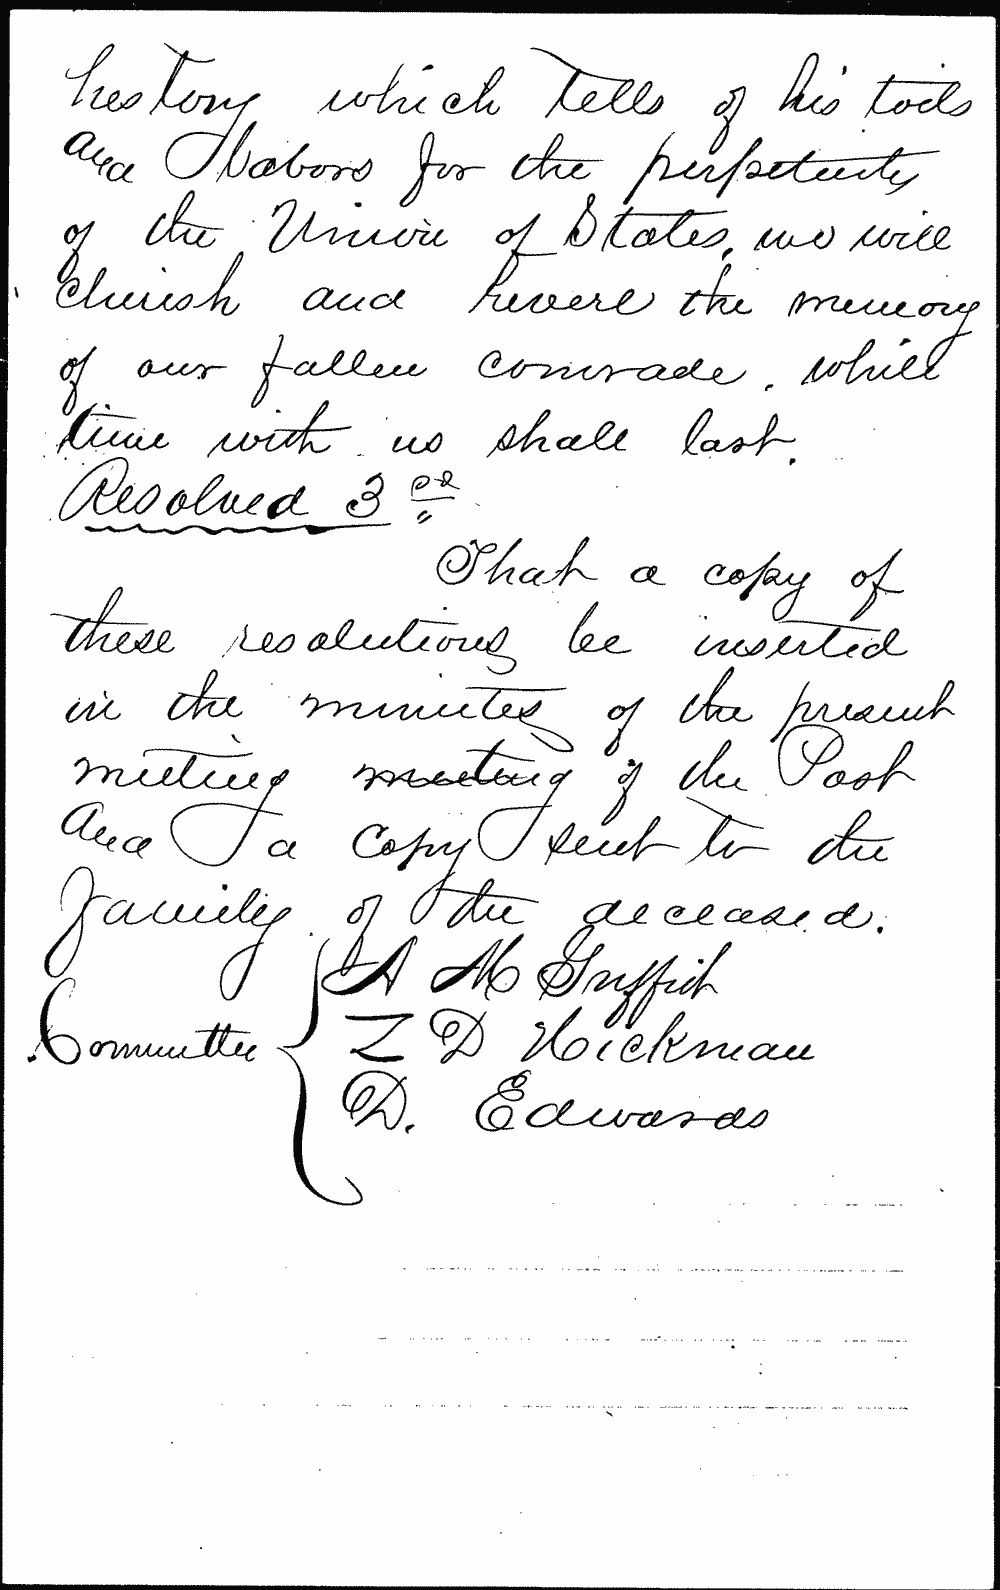 history which tells of his toils
and labors for the perpetuity
of the Union of States, we will
cherish and revere the memory
of our fallen comrade. while
time with us shall last.
Resolved 3rd
That a copy of
these resolutions be inserted
in the minutes of the present
meeting meeting of the Post
and a copy sent to the
family of the deceased.
Committee { A M Griffith
Z D Hickman
D. Edwards